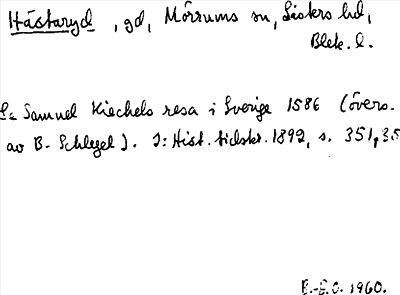 Hästaryd, gd, Mörrums sn, Listers hd,
Blek. l.
L= Samuel Kiechels resa i Sverige 1586 (övers.
av B. Schlegel). I: Hist. tidskr. 1892, s. 351, 35
E.-E.O. 1960.